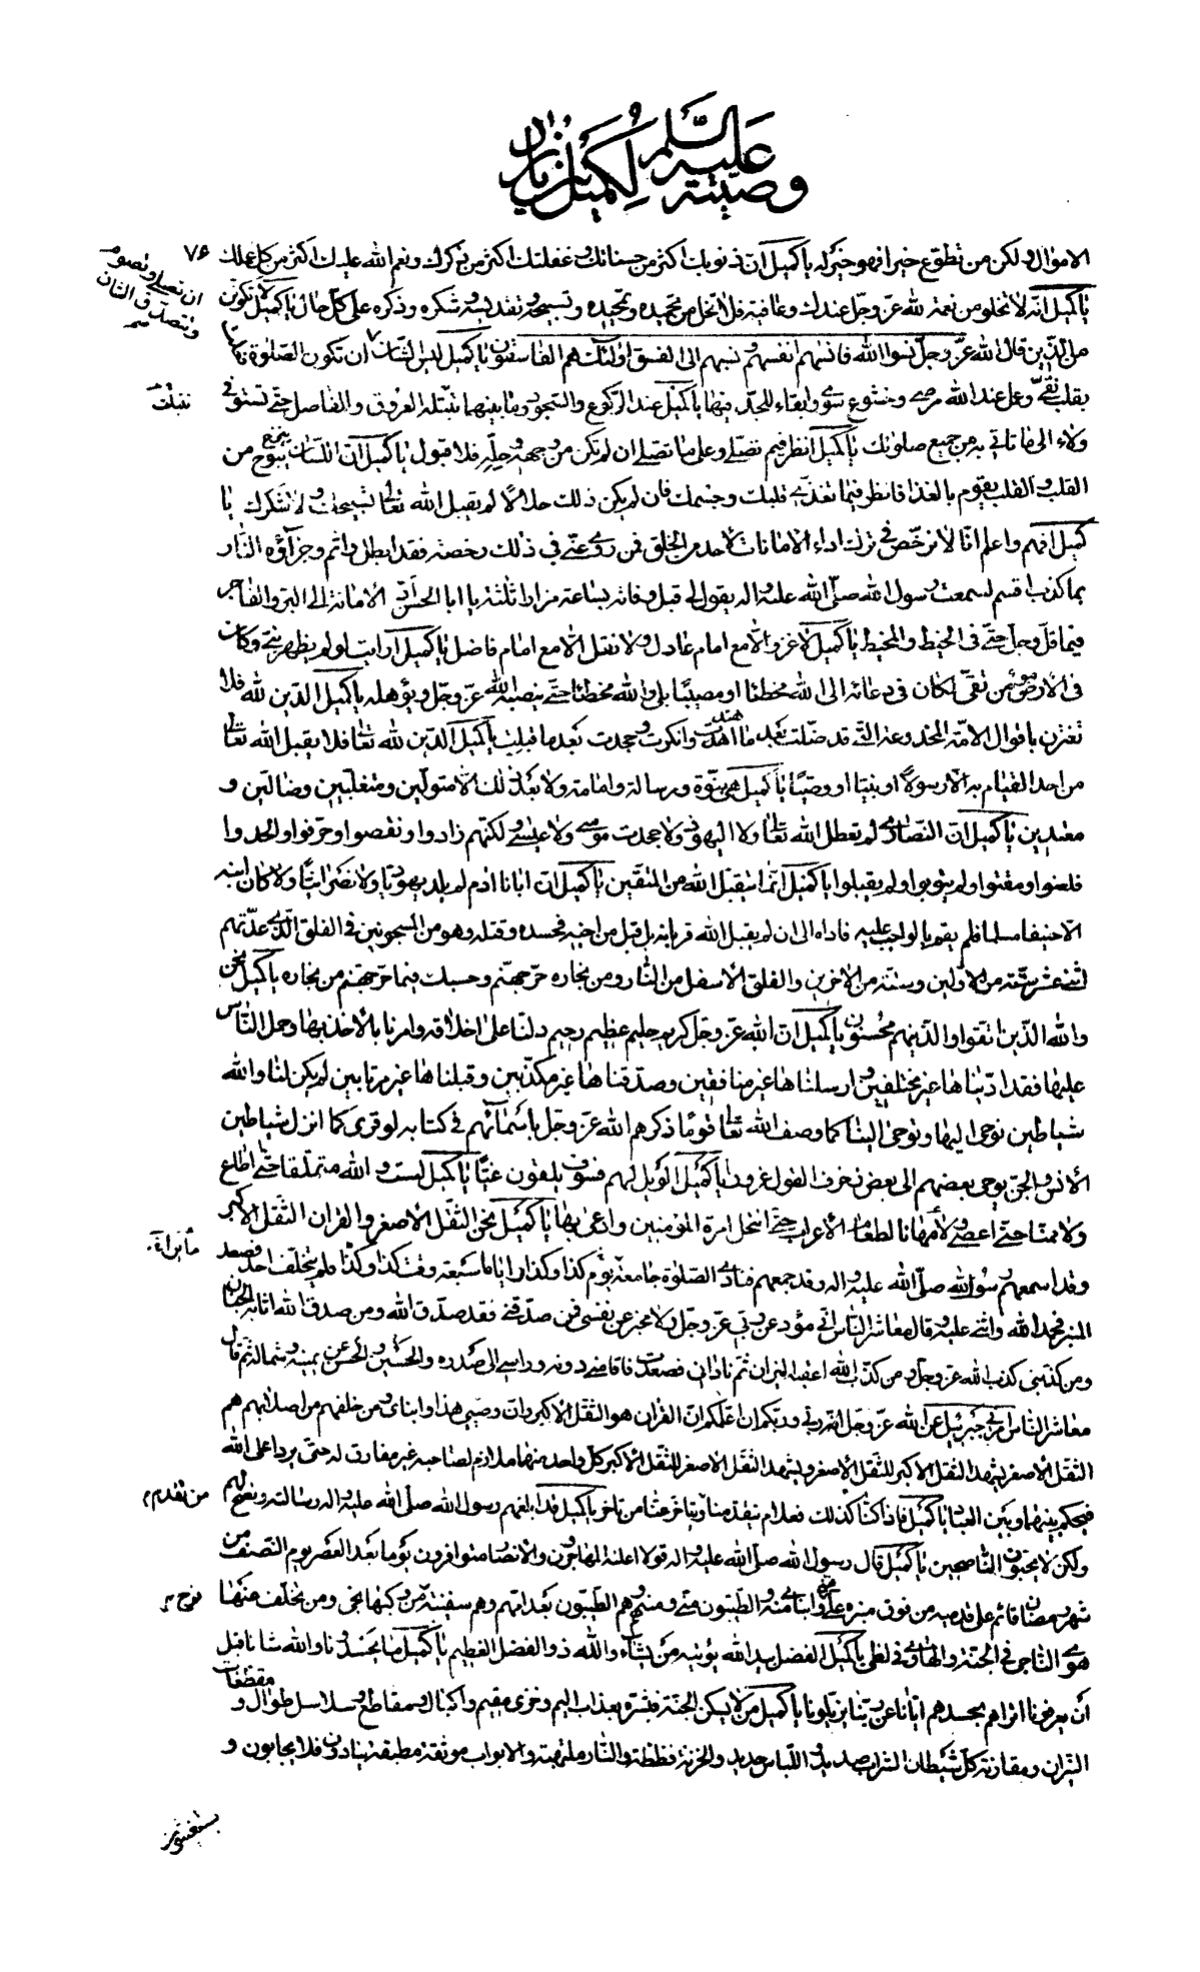 وصيته عليه السلم لكميل بن زياد
٧۶
الاموال ولكن من تطوع خيرا فهو خير له يا كميل ان ذنوبك اكثر من حسناتك وغفلتك اكثر من ذكرك ونعم الله عليك اكثر من كل عملك
يا كميل انه لا تخلو من نعمة لله عز وجل عندك وعافية فلا تخل من تحميده وتمجيده وتسبيحه وتقديسه وشكره وذكره على كل حال يا كميل لا تكونن
من الذين قال الله عز وجل نسوا الله فانسهم انفسهم ونسبهم الى الفسق اولئك هم الفاسقون يا كميل ليس الشان ان تكون الصلوة
ان تصلي وتصوم وتتصدق الشان
بقلب نقي وعمل عند الله مرضي وخشوع سوي وابقاء للجد فيها يا كميل عند الركوع والسجود وما بينهما تبتلت العروق والمفاصل حتى تستوفى
تبتلت
ولاء الى ما تاتي به من جميع صلوتك يا كميل انظر فيم تصلي وعلى ما تصلي ان لم تكن من وجهه وحله فلا قبول يا كميل ان اللسان يبوح من
القلب والقلب يقوم بالغذا فانظر فيما تغذي قلبك وجسمك فان لم يكن ذلك حلالا لم يقبل الله تعالى تسبيحك ولا شكرك يا
كميل افهم واعلم انا لا نرخص في ترك اداء الامانات لاحد من الخلق فمن روى عني في ذلك رخصة فقد ابطل واثم وجزاؤه النار
بما كذب اقسم لسمعت رسول الله صلى الله عليه واله يقول لي قبل وفاته بساعة مرارا ثلثة يا ابا الحسن اد الامانة الى البر والفاجر
فيما قل وجل حتى في الخيط والمخيط يا كميل لا غزو الا مع امام عادل ولا نفل الا مع امام فاضل يا كميل ارايت لو لم يظهر نبي وكان
في الارض مؤمن تقي لكان في دعائه الى الله مخطئا او مصيبا بلى والله مخطئا حتى ينصبه الله عز وجل ويؤهله يا كميل الدين لله فلا
تغترن باقوال الامة المخدوعة التي قد ضلت بعد ما اهتدت وانكرت وجحدت بعد ما قبلت يا كميل الدين لله تعالى فلا يقبل الله تعالى
من احد القيام به الا رسولا او نبيا او وصيا يا كميل هي نبوة ورسالة وامامة ولا بعد ذلك الا متولين ومتغلبين وضالين و
معتدين يا كميل ان النصارى لم تعطل الله تعالى ولا اليهود ولا جحدت موسى ولا عيسى ولكنهم زادوا ونقصوا وحرفوا والحدوا
فلعنوا ومقتوا ولم يتوبوا ولم يقبلوا يا كميل انما يتقبل الله من المتقين يا كميل ان ابانا ادم لم يلد يهوديا ولا نصرانيا ولا كان ابنه
الا حنيفا مسلما فلم يقم بالواجب عليه فاداه الى ان لم يقبل الله قربانه بل قبل من اخيه فحسده وقتله وهو من المسجونين في الفلق الذي عدتهم
اثنى عشر ستة من الاولين وستة من الاخرين والفلق الاسفل من النار ومن بخاره حر جهنم وحسبك فيما حر جهنم من بخاره يا كميل نحن
والله الذين اتقوا والذين هم محسنون يا كميل ان الله عز وجل كريم حليم عظيم رحيم دلنا على اخلاقه وامرنا بالاخذ بها وحمل الناس
عليها فقد ادينا ها غير مختلفين وارسلنا ها غير منافقين وصدقنا ها غير مكذبين وقبلنا ها غير مرتابين لم يكن لنا والله
شياطين نوحى اليها وتوحى الينا كما وصف الله تعالى قوما ذكرهم الله عز وجل باسمائهم في كتابه لو قرئ كما انزل شياطين
الانس والجن يوحى بعضهم الى بعض زخرف القول غرورا يا كميل الويل لهم فسوف يلقون غيا يا كميل لست والله متملقا حتى اطاع
ولا ممنا حتى اعصى ولا مهانا لطغام الاعراب حتى انتحل امرة المؤمنين وادعى بها يا كميل نحن الثقل الاصغر والقران الثقل الاكبر
وقد اسمعهم رسول الله صلى الله عليه واله وقد جمعهم فنادى الصلوة جامعة يوم كذا وكذا واياما سبعة وقت كذا وكذا فلم يتخلف احد فصعد
المنبر فحمد الله واثنى عليه وقال معاشر الناس اني مؤد عن ربي عز وجل لا مخبر عن نفسي فمن صدقني فقد صدق الله ومن صدق الله اثابه الجنان
ومن كذبني كذب الله عز وجل ومن كذب الله اعقبه النيران ثم ناداني فصعدت فاقامني دونه وراسي الى صدره والحسن والحسين عن يمينه وشماله ثم قال
معاشر الناس امرني جبرئيل عن الله عز وجل انه ربي وربكم ان اعلمكم ان القران هو الثقل الاكبر وان وصيي هذا وابناي ومن خلفهم من اصلابهم هم
الثقل الاصغر يشهد الثقل الاكبر للثقل الاصغر ويشهد الثقل الاصغر للثقل الاكبر كل واحد منهما ملازم لصاحبه غير مفارق له حتى يردا على الله
فيحكم بينهما وبين العباد يا كميل فاذا كنا كذلك فعلام تقدمنا من تاخر عنا من تاخر يا كميل قد ابلغهم رسول الله صلى الله عليه واله رسالته ونصح لهم
من تقدم
ولكن لا يحبون الناصحين يا كميل قال رسول الله صلى الله عليه واله قولا اعلنه والمهاجرون والانصار متوافرون يوما بعد العصر يوم النصف من
شهر رمضان قائم على قدميه من فوق منبره علي وابناي منه والطيبون مني ومنهم وهم الطيبون بعد امهم وهم سفينة من ركبها نجى ومن تخلف عنها
نوح
هوى الناجى في الجنة والهاوى في لظى يا كميل الفضل بيد الله يؤتيه من يشاء والله ذو الفضل العظيم يا كميل ما يحسدوننا والله شانا قبل
ان يعرفونا اتراهم بحسدهم ايانا عن ربنا يزيلونا يا كميل من لا يسكن الجنة فبشره بعذاب اليم وخزى مقيم واكبال ومقامع وسلاسل طوال و
مقطعات
النيران ومقارنة كل شيطان الشراب صديد واللباس حديد والخزنة فظظة والنار ملتهبة والابواب موثقة مطبقة ينادون فلا يجابون و
يستغيثون